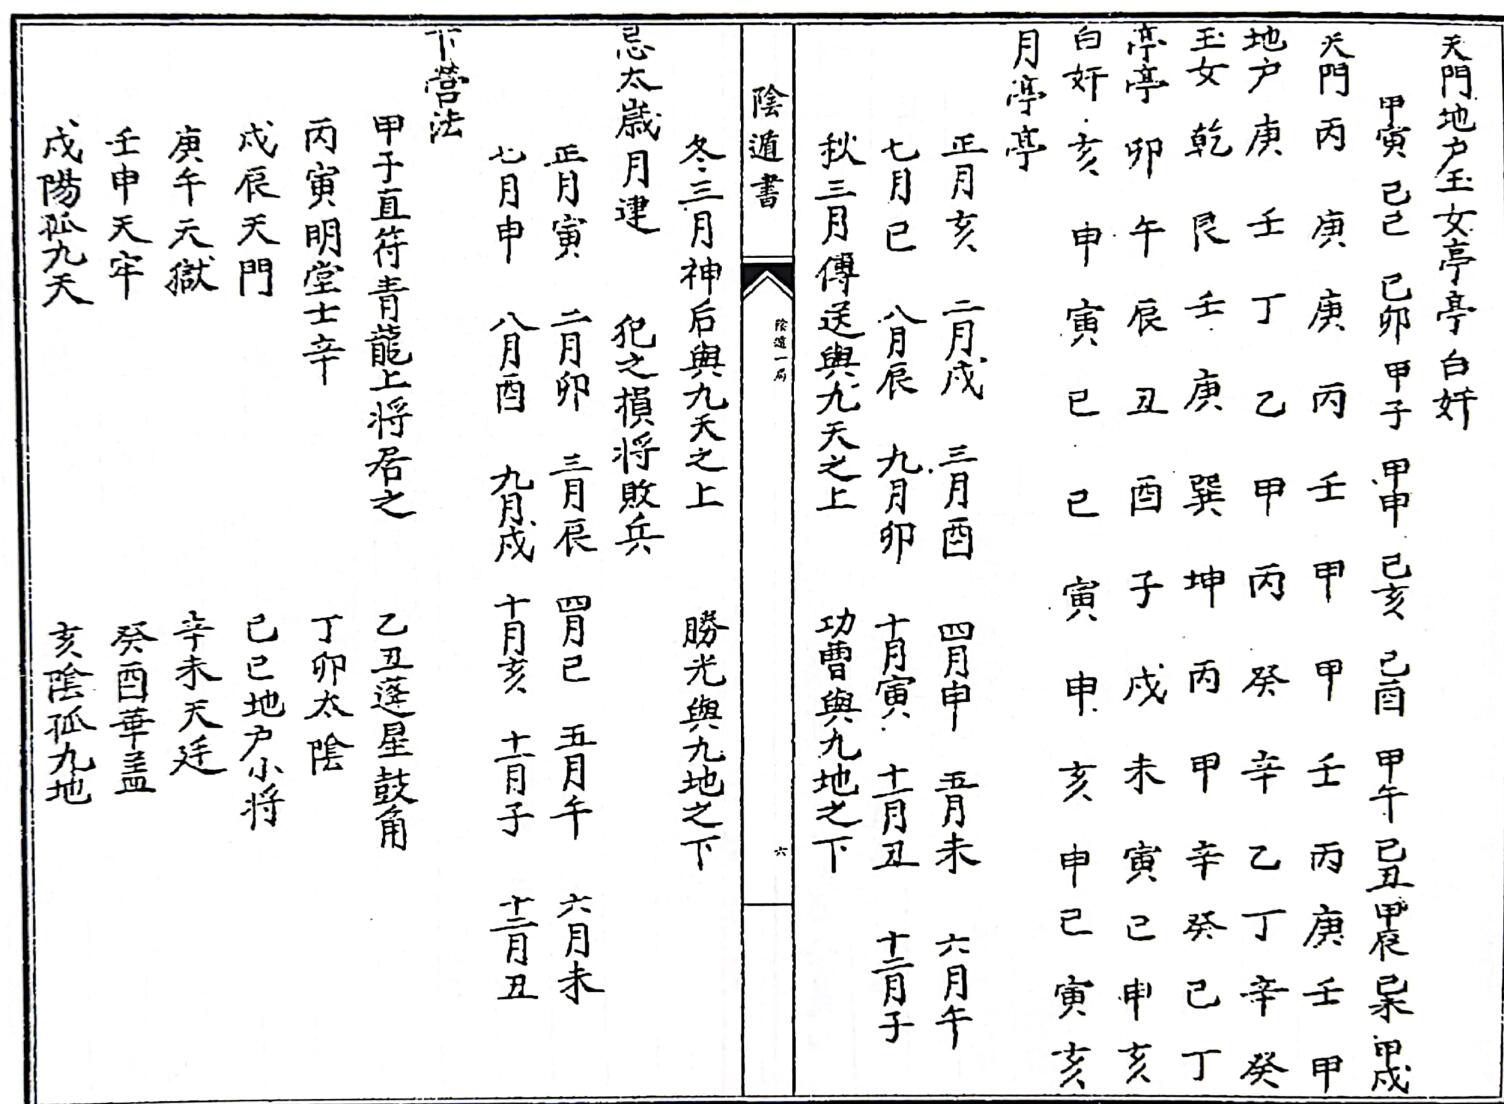 天門地户玉女亭亭白奸
甲寅 己巳 己卯 甲子 甲申 己亥 己酉 甲午 己丑 甲辰 己未 甲戌
天門 丙 庚 庚 丙 壬 甲 甲 壬 丙 庚 壬 甲
地户 庚 壬 丁 乙 甲 丙 癸 辛 乙 丁 辛 癸
玉女 乾 艮 壬 庚 巽 坤 丙 甲 辛 癸 己 丁
亭亭 卯 午 辰 丑 酉 子 戌 未 寅 己 申 亥
白奸 亥 申 寅 巳 已 寅 申 亥 申 巳 寅 亥
月亭亭
正月亥 二月戌 三月酉 四月申 五月未 六月午
七月巳 八月辰 九月卯 十月寅 十一月丑 十二月子
秋三月傳送與九天之上 功曹與九地之下
陰遁書
陰遁一局
六
冬三月神后與九天之上 勝光與九地之下
忌太歲月建 犯之損将敗兵
正月寅 二月卯 三月辰 四月巳 五月午 六月未
七月申 八月酉 九月戌 十月亥 十一月子 十二月丑
下營法
甲子直符青龍上将居之 乙丑蓬星鼓角
丙寅明堂士辛 丁卯太陰
戊辰天門 己巳地户小将
庚午天獄 辛未天廷
壬申天牢 癸酉華盖
戌陽孤九天 亥陰孤九地